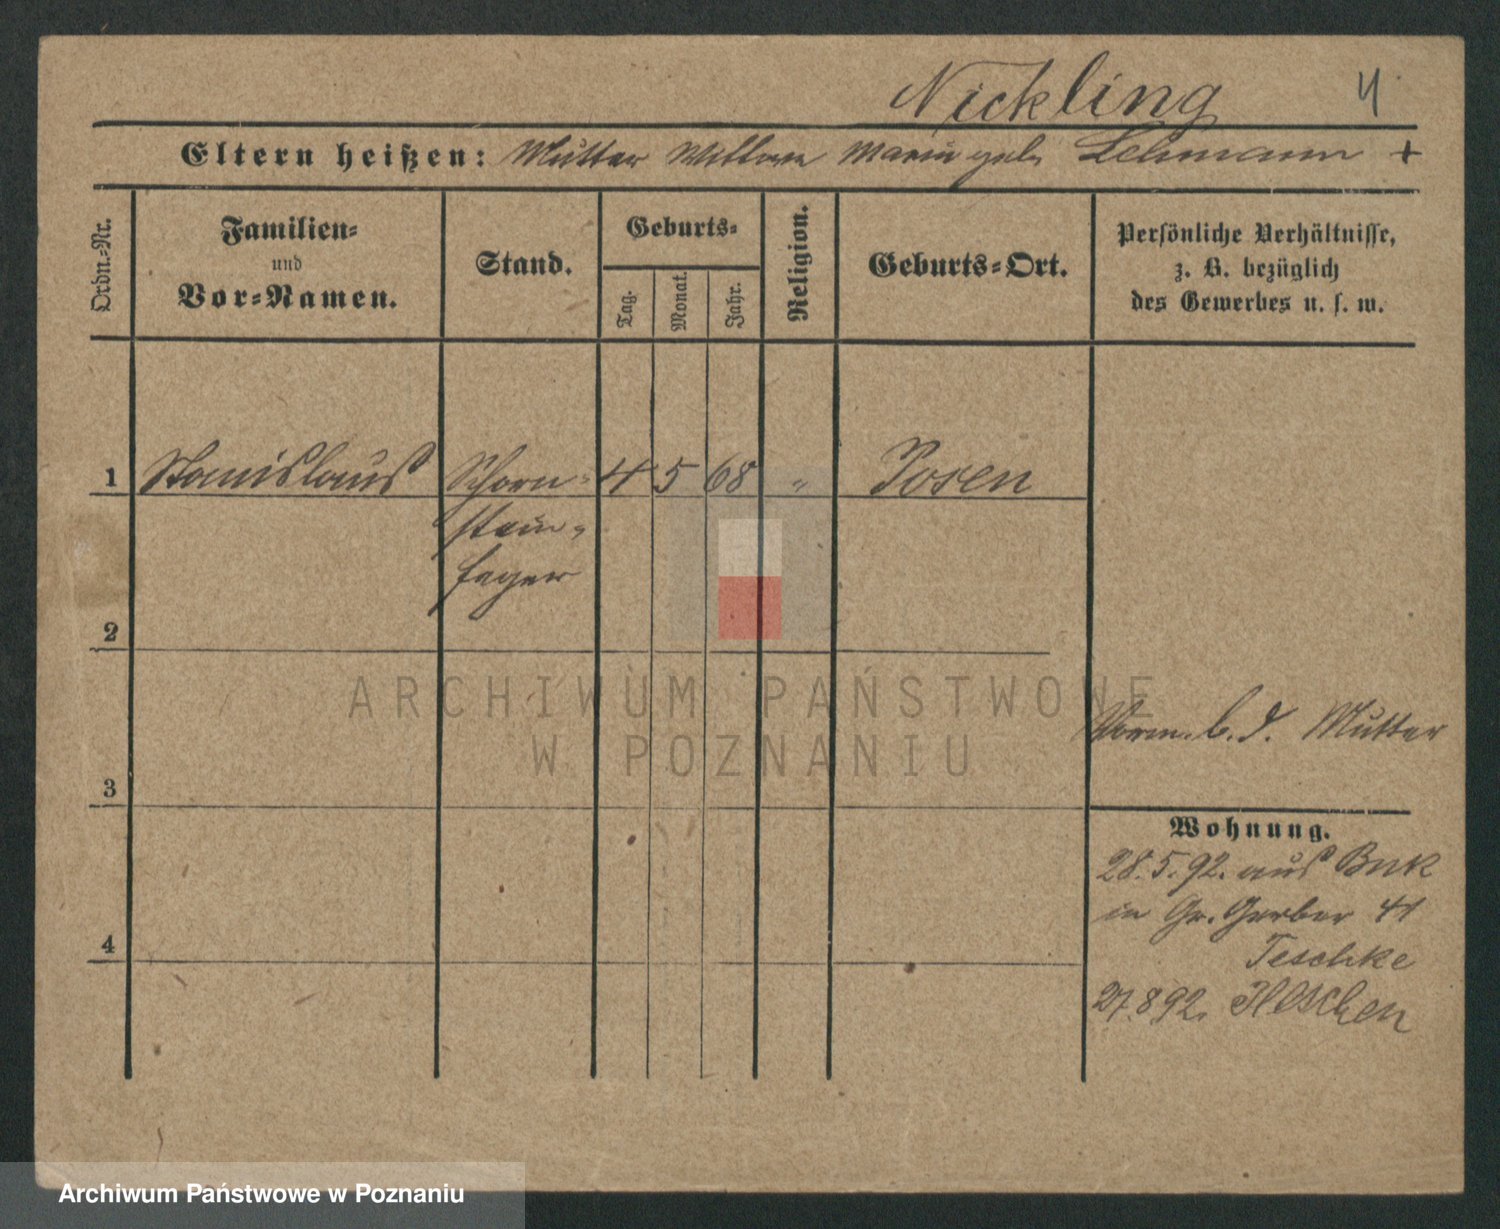 Nickling 4
Eltern heißen: Mutter Wittwe Marie geb. Lehmann +
Ordn.-Nr.
Familien-
und
Vor-Namen.
Stand.
Geburts-
Tag.
Monat.
Jahr.
Religion.
Geburts-Ort.
Persönliche Verhältnisse,
z. B. bezüglich
des Gewerbes u. s. w.
1 Stanislaus Schorn- 4 5 68 " Posen
stein-
feger
2
ARCHIWUM PAŃSTWOWE
W POZNANIU
Vorm. b. d. Mutter
3
Wohnung.
28.5.92. aus Buk
in Gr. Gerber 41
Teschke
4
27.8.92.
Archiwum Państwowe w Poznaniu